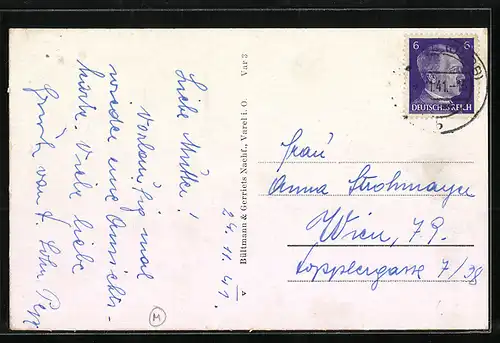 Liebe Mutter!
Vorläufig mal
wieder eine Ansichts-
karte. Viele liebe
Grüße von d. Sohn Pepp
24.11.41.
Bültmann & Gerriets Nachf., Varel i. O. Var 3
6 6
DEUTSCHES REICH
41.-
b
Frau
Anna Strohmayer
Wien, 79.
Kopplergasse 7/38
M